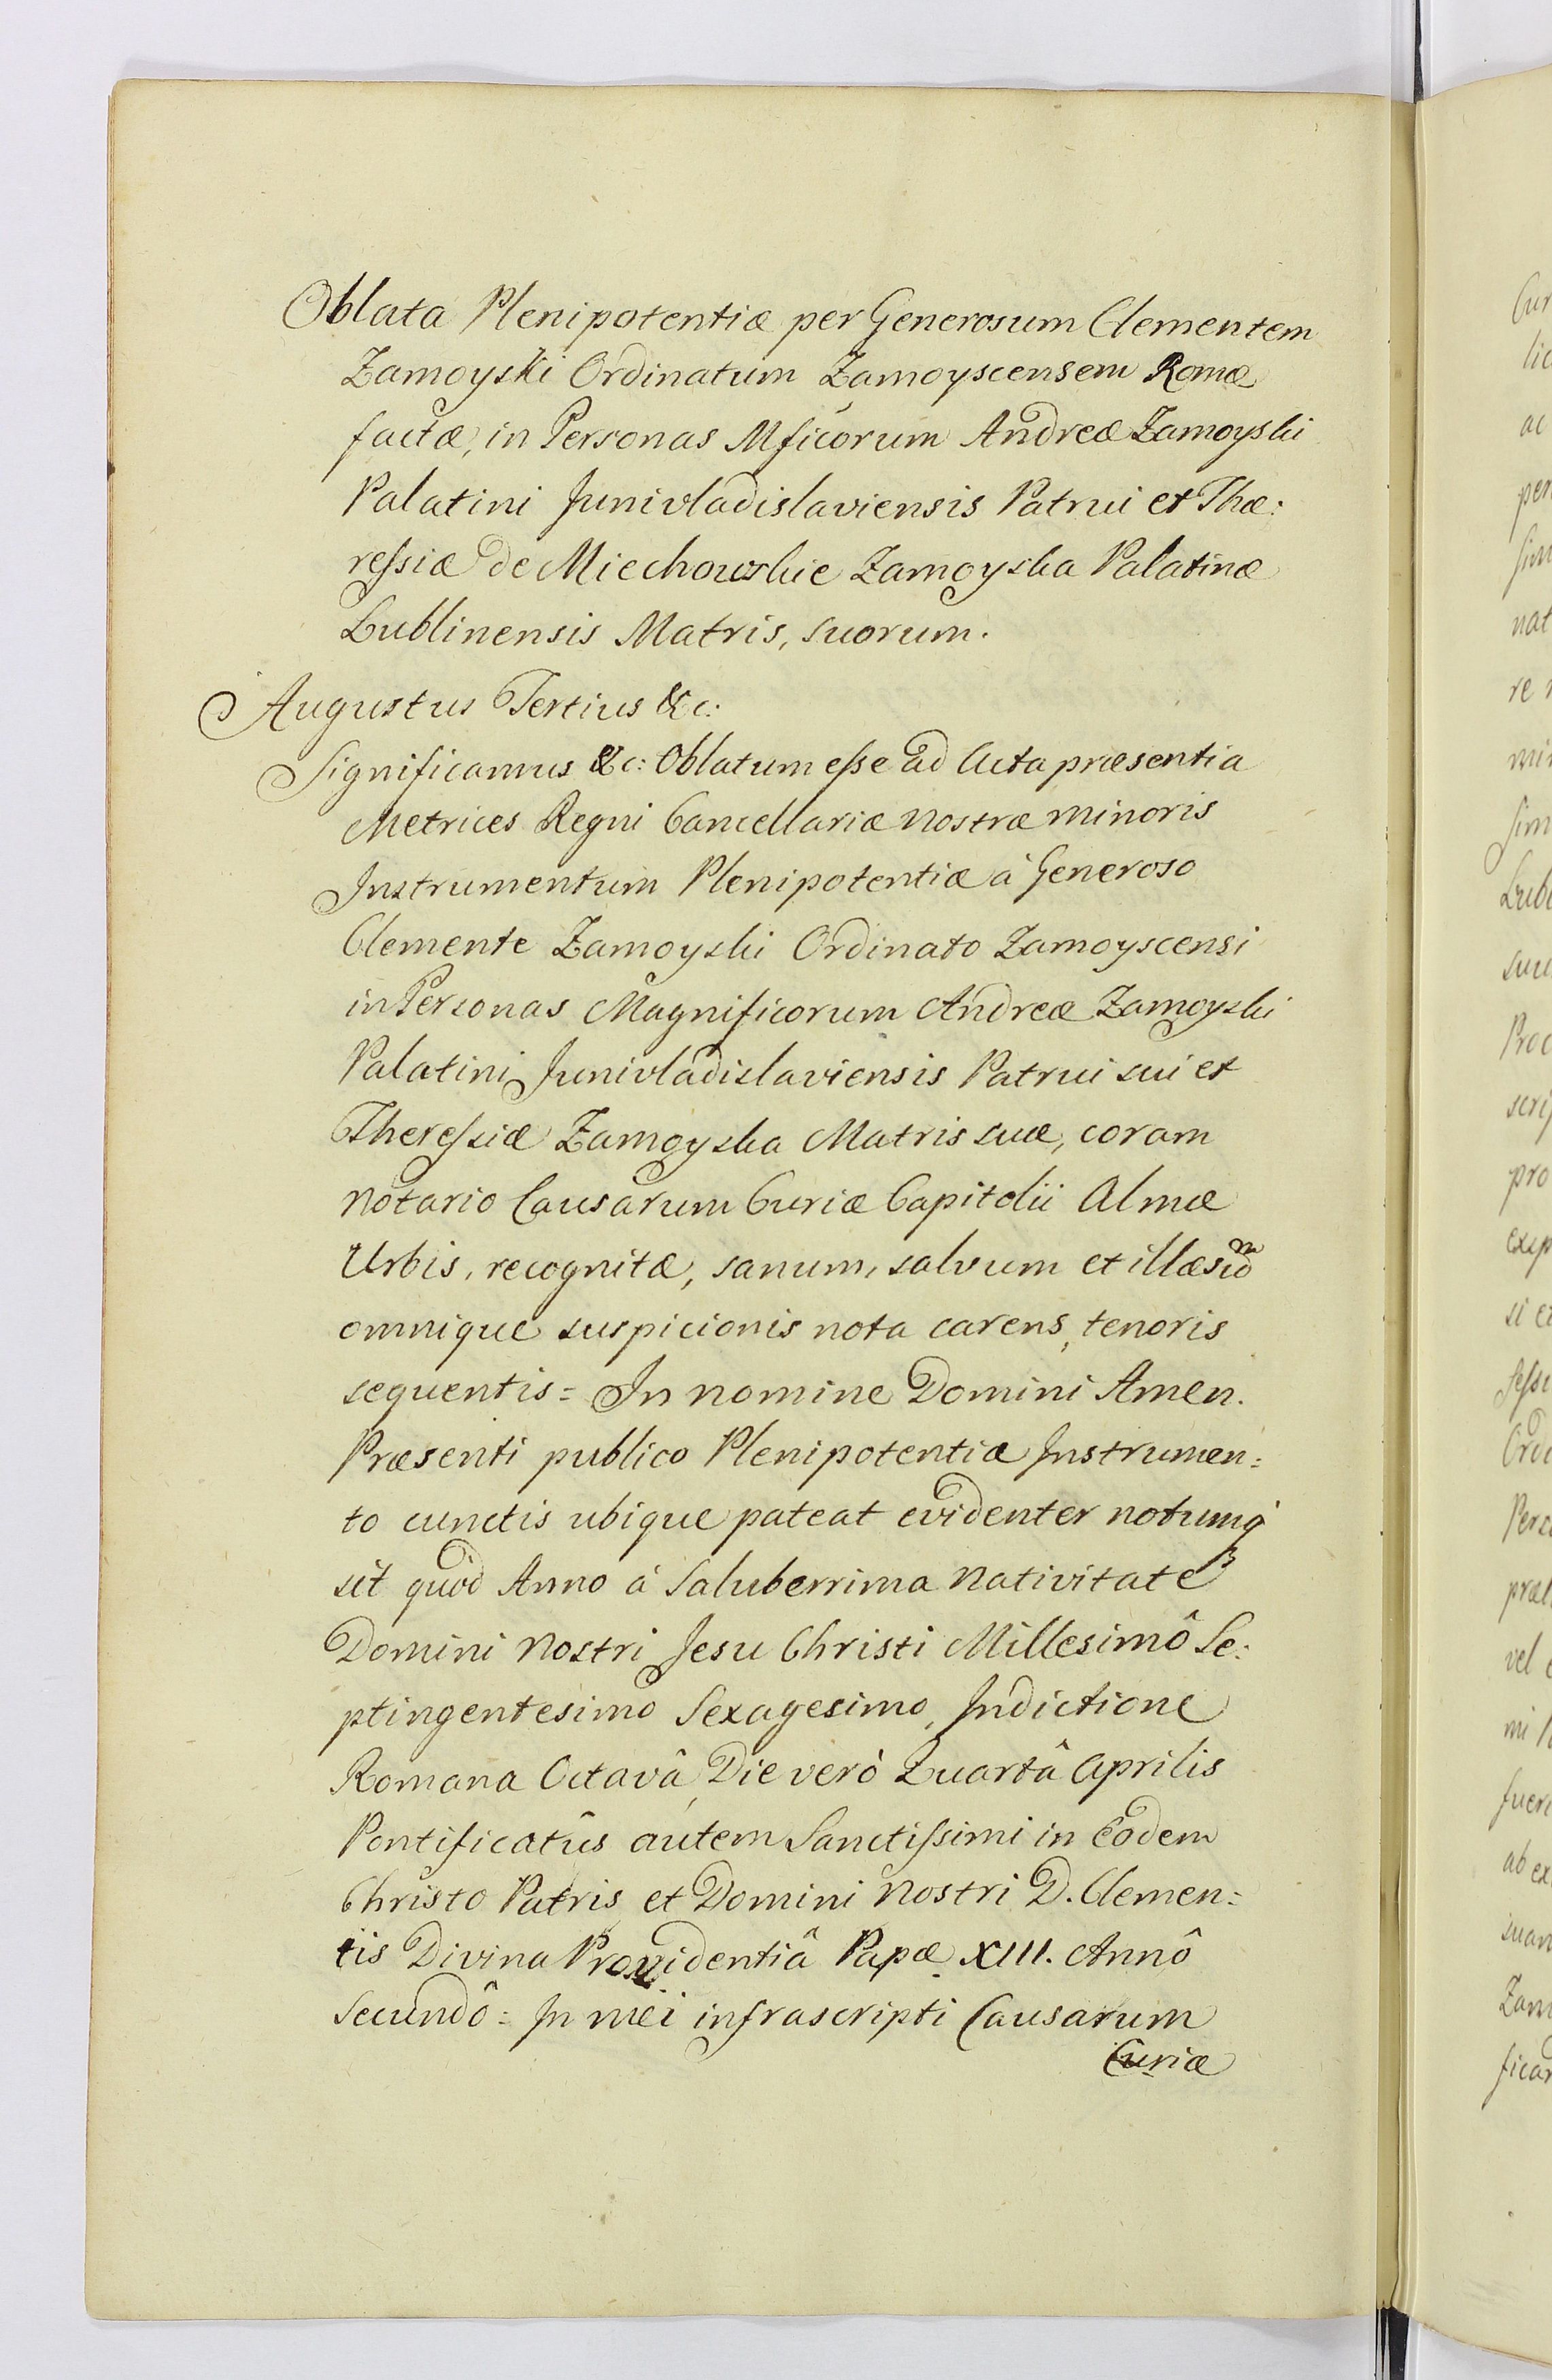 Oblata Plenipotentiæ per Generosum Clementem
Zamoyski Ordinatum Zamoyscensem Romæ
factæ, in Personas Mficorum Andreæ Zamoyski
Palatini Junivladislaviensis Patrui et Thæ:
reſsiæ de Miechowskie Zamoyska Palatinæ
Lublinensis Matris, suorum.
Augustus Tertius &c:
Significamus &c: Oblatum eſse ad Acta præsentia
Metrices Regni Cancellariæ Nostræ Minoris
Instrumentum Plenipotentiæ à Generoso
Clemente Zamoyski Ordinato Zamoyscensi
in Personas Magnificorum Andreæ Zamoyski
Palatini Junivladislaviensis Patrui sui et
Thereſsiæ Zamoyska Matris suæ, coram
Notario Causarum Curiæ Capitolii Almæ
Urbis, recognitæ, sanum, salvum et illæsum
omnique suspicionis nota carens, tenoris
sequentis = In nomine Domini Amen.
Præsenti publico Plenipotentiæ Instrumen:
to cunctis ubique pateat evidenter notumq'
sit quòd Anno à Saluberrima Nativitate
Domini Nostri Jesu Christi Millesimô Se:
ptingentesimo Sexagesimo, Indictione
Romana Octavâ, Die verò Quartâ Aprilis
Pontificatûs autem Sanctiſsimi in Eodem
Christo Patris et Domini Nostri D. Clemen:
tis Divina Providentiâ Papæ XIII. Annô
Secundô = In mei infrascripti Causarum
Curiæ